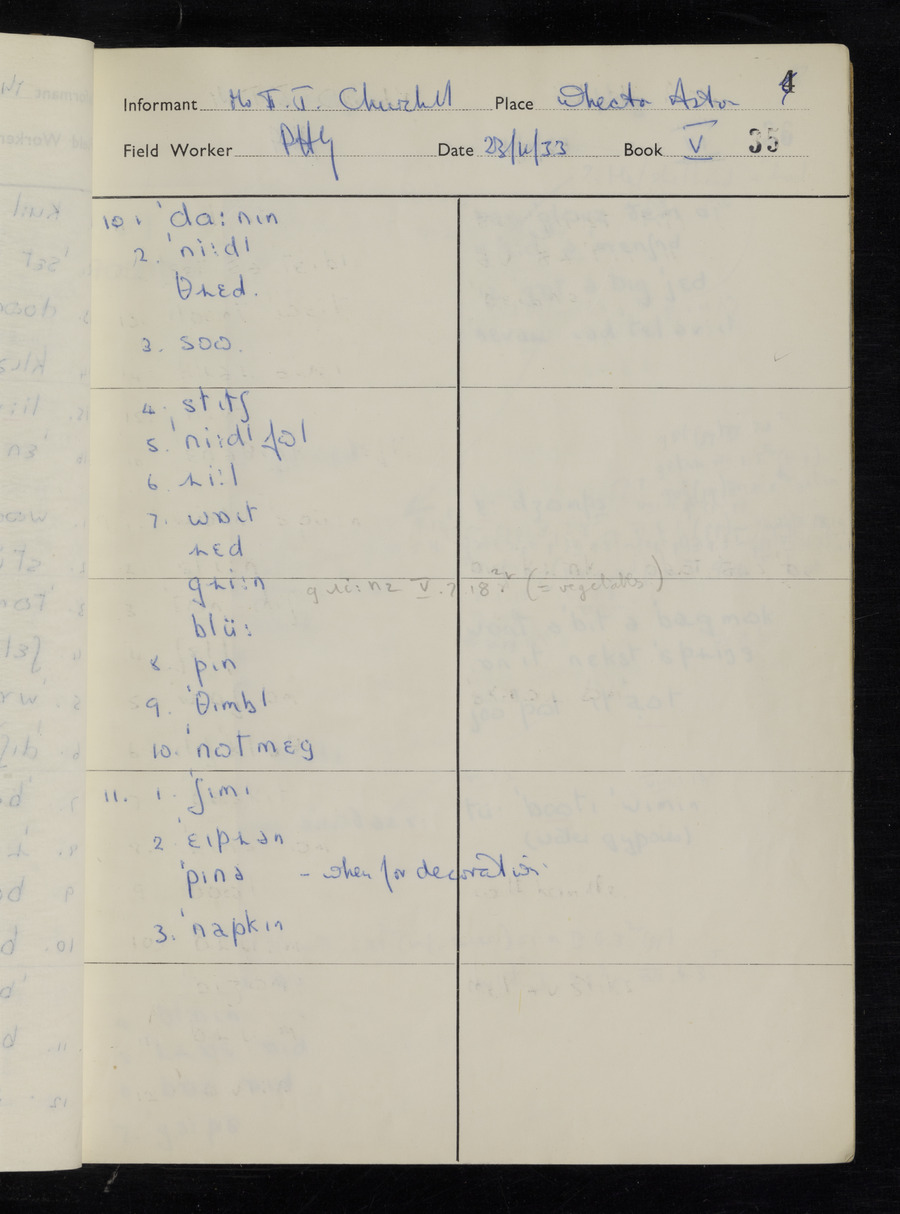 4
Informant Mr F. T. Churchill Place Wheaton Aston
Field Worker PHG Date 23/11/33 Book V 35
10. 1. ˈdaːnɪn
2. ˈniːdl
θɹɛd.
3. soʊ.
4. stɪtʃ
5. ˈniːdlfʊl
6. ɹiːl
7. wɒɪt
ɹɛd
gɹiːn gɹiːnz V.7.18 (= vegetables)
blüː
8. pɪn
9. ˈθɪmbl
10. ˈnʊtmɛg
11. 1. ˈʃɪmɪ
2 ˈɛɪpɹən
ˈpɪnə – when for decoration
3. ˈnapkɪn